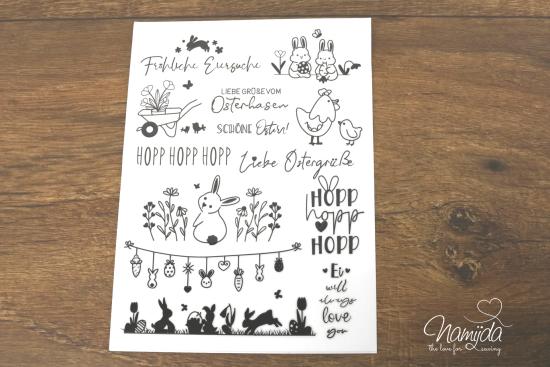 Fröhliche Eiersuche
LIEBE GRÜßE VOM
Osterhasen
SCHÖNE Ostern!
HOPP HOPP HOPP
Liebe Ostergrüße
HOPP
hopp
HOPP
Ei
will
always
love
you
Namijda
the love for sewing